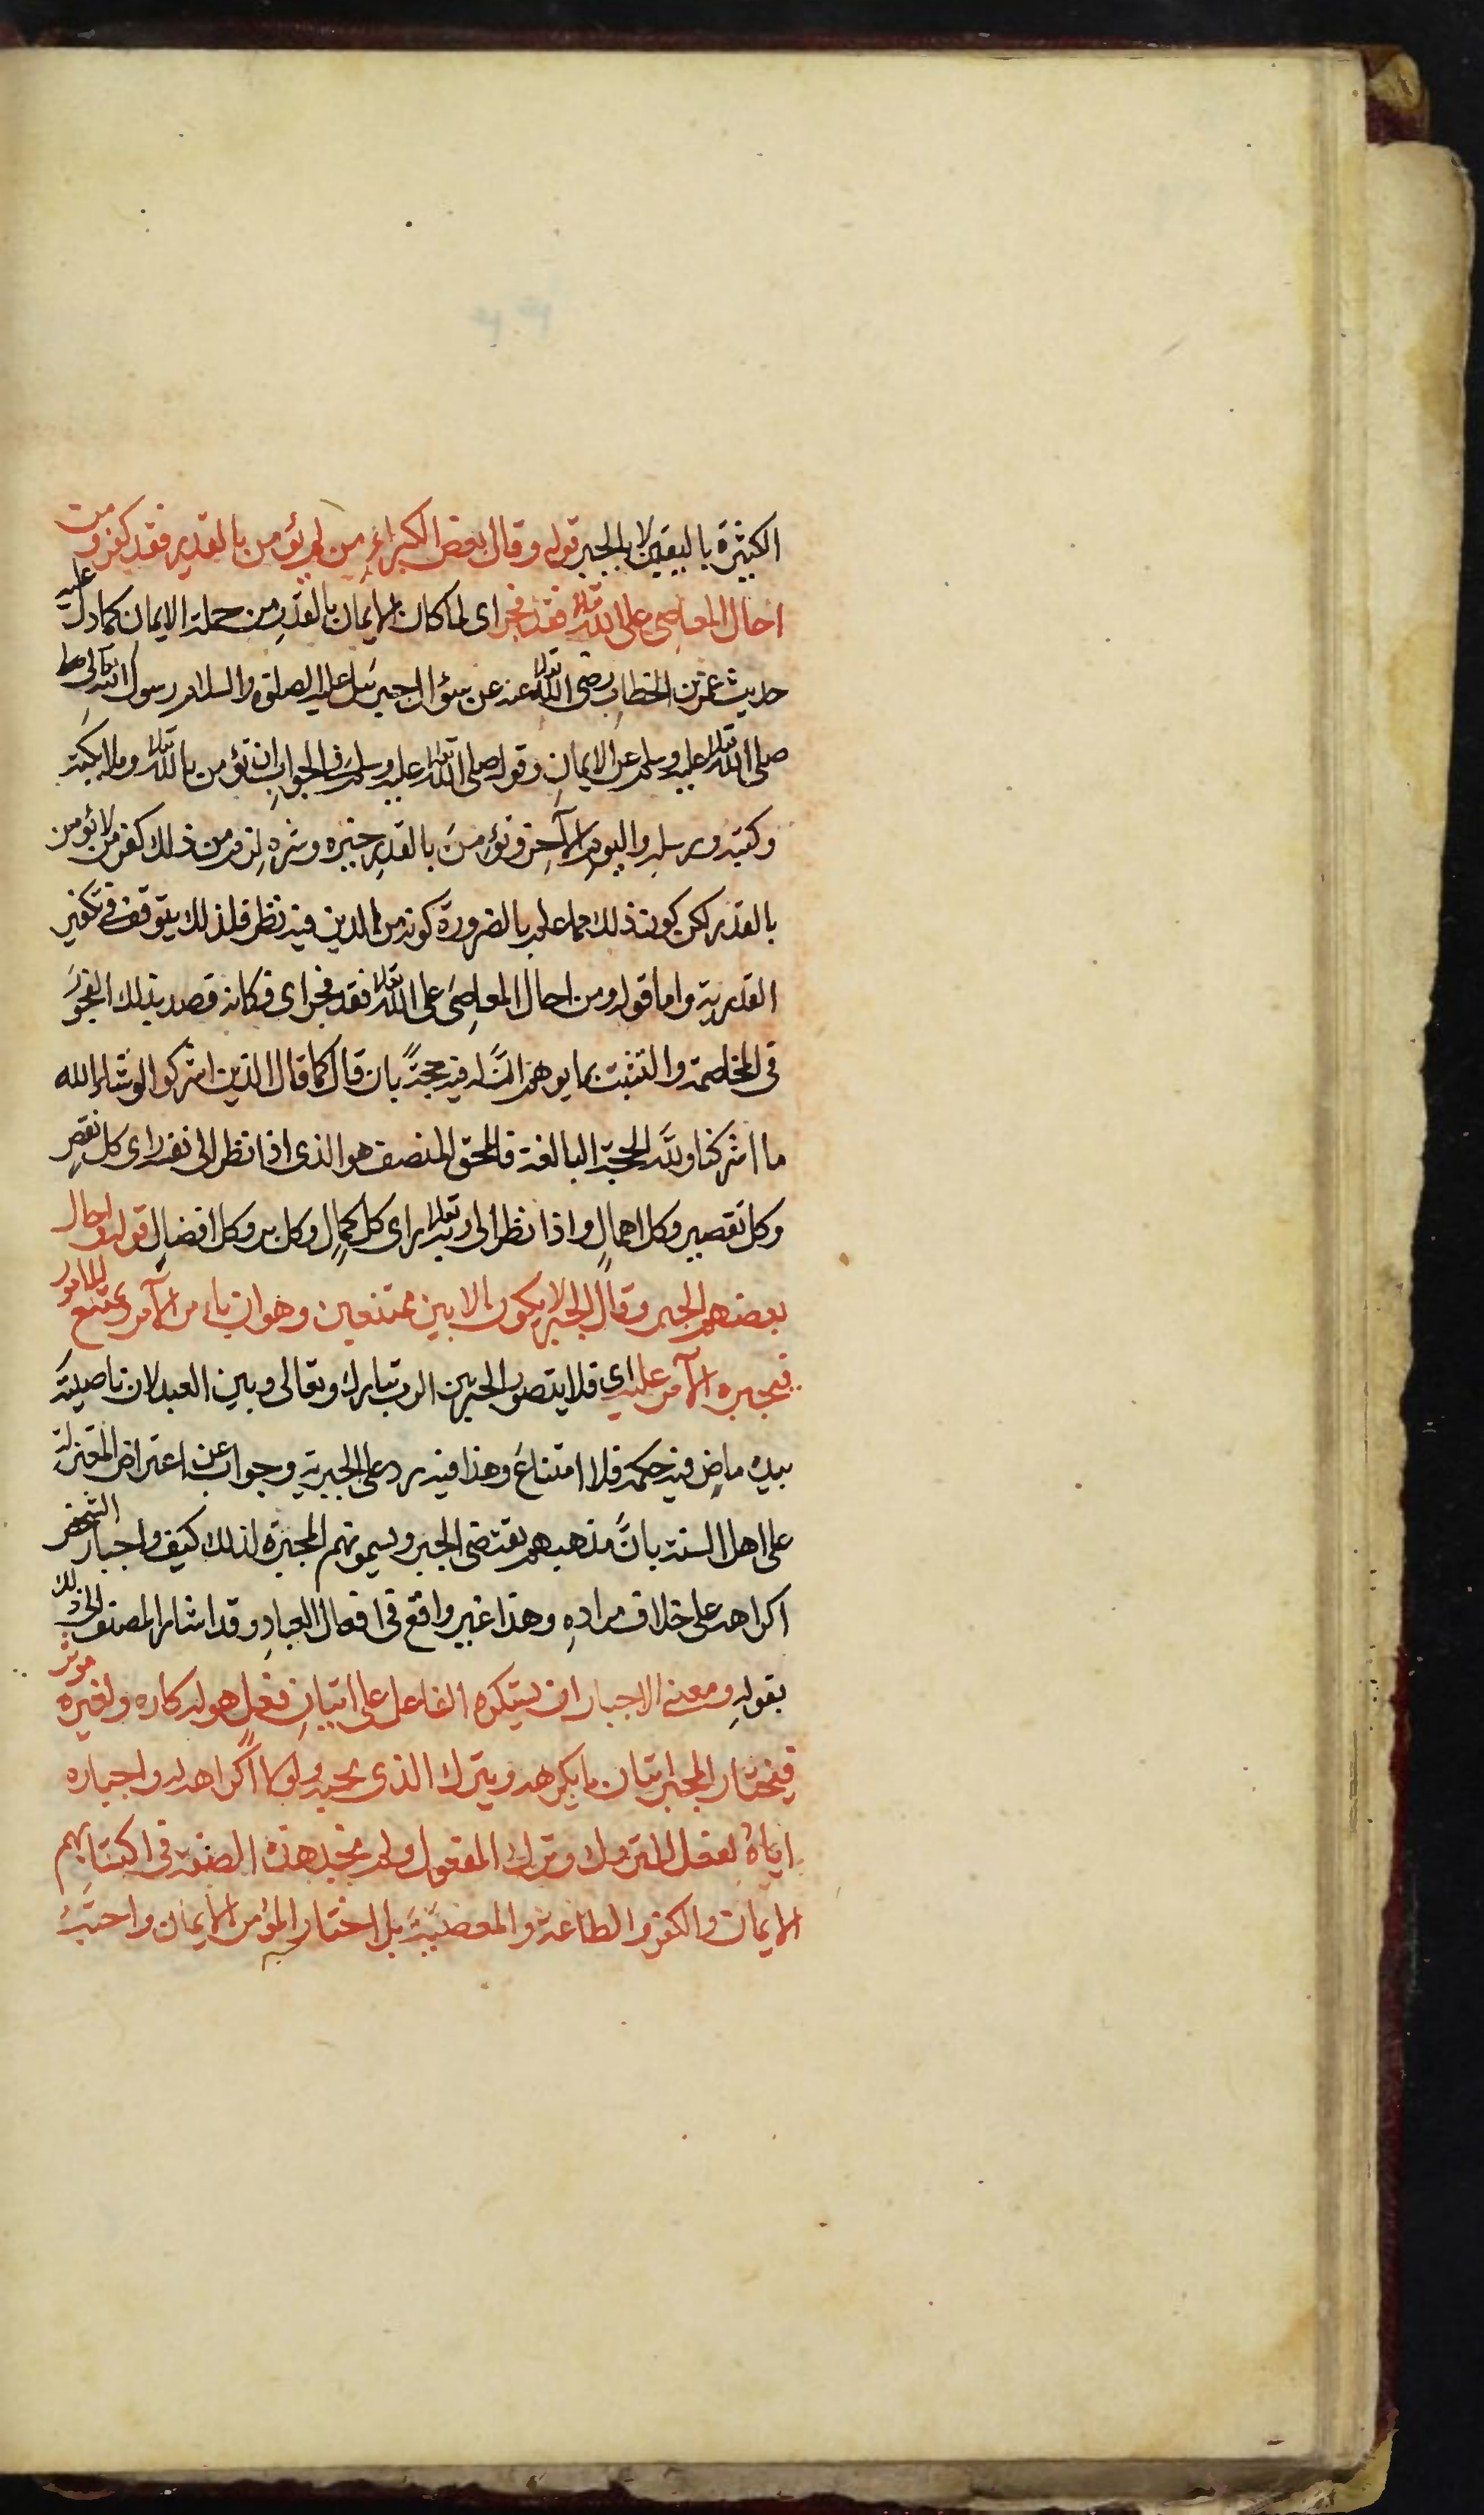 الكثيرة باليقين لا بالجبر قوله وقال بعض الكبراء من لم يؤمن بالقدر فقد كفر ومن
احال المعاصي على الله تعالى فقد فجر اى لما كان الايمان بالقدر من جملة الايمان كما دل عليه
حديث عمر بن الخطاب رضى الله تعالى عنه عن سؤال جبرئيل عليه الصلوة والسلام رسول الله تعالى
صلى الله تعالى عليه وسلم عن الايمان وقوله صلى الله تعالى عليه وسلم فى الجواب ان تؤمن بالله تعالى وملائكته
وكتبه ورسله واليوم الآخر وتؤمن بالقدر خيره وشره لزم من ذلك كفر من لا يؤمن
بالقدر لكن كون ذلك مما علم بالضرورة كونه من الدين فيه نظر فلذلك يتوقف فى تكفير
القدرية واما قوله ومن احال المعاصى على الله تعالى فقد فجر اى فكانه قصد بذلك الفجور
فى المخاصمة والتثبت بما يوهم ان له فيه حجة بان قال كما قال الذين اشركوا لو شاء الله
ما اشركنا ولله الحجة البالغة فالمحق المنصف هو الذى اذا نظر الى نفسه راى كل نقص
وكل تقصير وكل اهمال واذا نظر الى ربه تعالى راى كل كمال وكل بر وكل افضال قوله واحال
بعضهم الجبر وقال الجبر لا يكون الا بين ممتنعين وهو ان يامر الآمر ويمتنع المامور
فيجبره الآمر عليه اى فلا يتصور الجبر بين الرب تبارك وتعالى وبين العبد لان ناصيته
بيده ماض فيه حكمه فلا امتناع وهذا فيه رد على الجبرية وجواب عن اعتراض المعتزلة
على اهل السنة بان مذهبهم يقتضى الجبر ويسمونهم المجبرة لذلك كيف واجبار الشخص
اكراهه على خلاف مراده وهذا غير واقع فى افعال العباد وقد اشار المصنف الى ذلك
بقوله ومعنى الاجبار ان يستكره الفاعل على اتيان فعل هو له كاره ولغيره موثر
فيختار المجبر اتيان ما يكرهه ويترك الذى يحبه ولولا اكراهه له واجباره
اياه لفعل المتروك وترك المفعول ولم نجد هذه الصفة فى اكتسابهم
الايمان والكفر والطاعة والمعصية بل اختار المؤمن الايمان واحبه